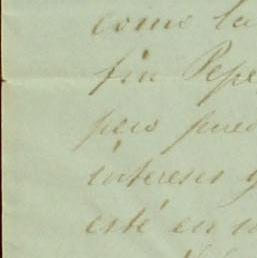 como la
fin Pepe
pero pued
interesa
esté en